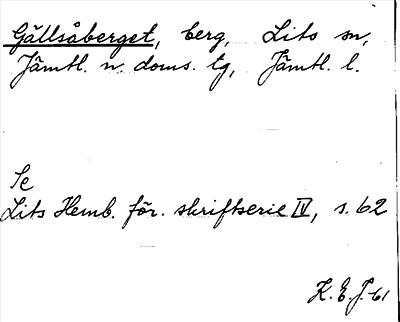 Gällsåberget, berg, Lits sn,
Jämtl. n. doms. tg, Jämtl. l.
Se
Lits Hemb. för. skriftserie IV, s. 62
K. E. J. 61